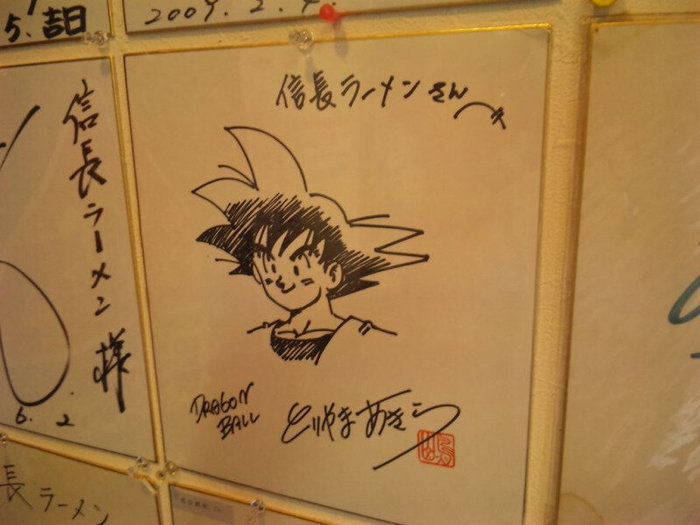 5.吉日
2009. 2. 4.
信長ラーメン様
6. 2
信長ラーメンさん江
DRAGON
BALL
とりやまあきら
長ラーメン